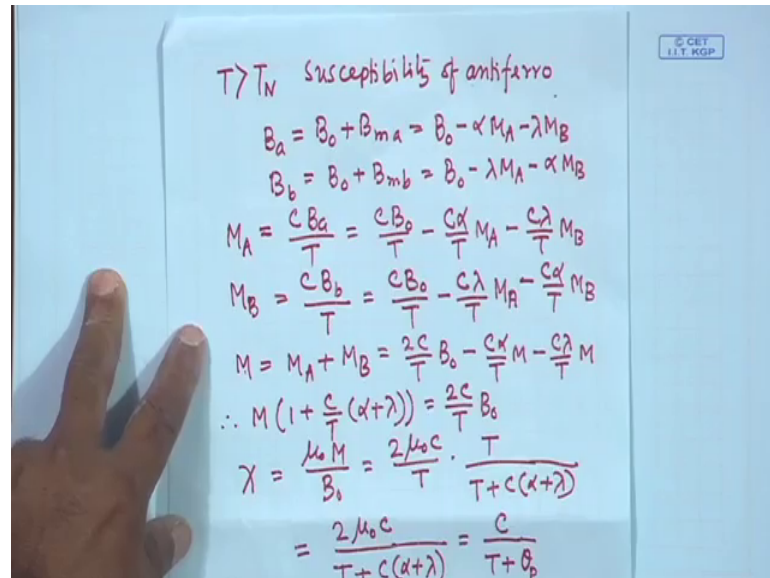 © CET
I.I.T. KGP
T > T_N Susceptibility of antiferro
B_a = B_0 + B_ma = B_0 - αM_A - λM_B
B_b = B_0 + B_mb = B_0 - λM_A - αM_B
M_A = CB_a/T = CB_0/T - Cα/T M_A - Cλ/T M_B
M_B = CB_b/T = CB_0/T - Cλ/T M_A - Cα/T M_B
M = M_A + M_B = 2C/T B_0 - Cα/T M - Cλ/T M
∴ M (1 + C/T (α+λ)) = 2C/T B_0
χ = μ_0 M/B_0 = 2μ_0 C/T · T/(T + C(α+λ))
= 2μ_0 C/(T + C(α+λ)) = C/(T + θ_p)